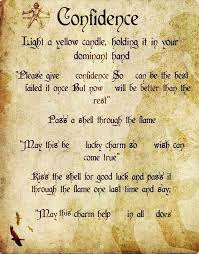 Confidence
Light a yellow candle, holding it in your
dominant hand
"Please give confidence So can be the best
failed it once But now will be better than the
rest"
Pass a shell through the flame
"May this be lucky charm so wish can
come true"
Kiss the shell for good luck and pass it
through the flame one last time and say;
"May this charm help in all does